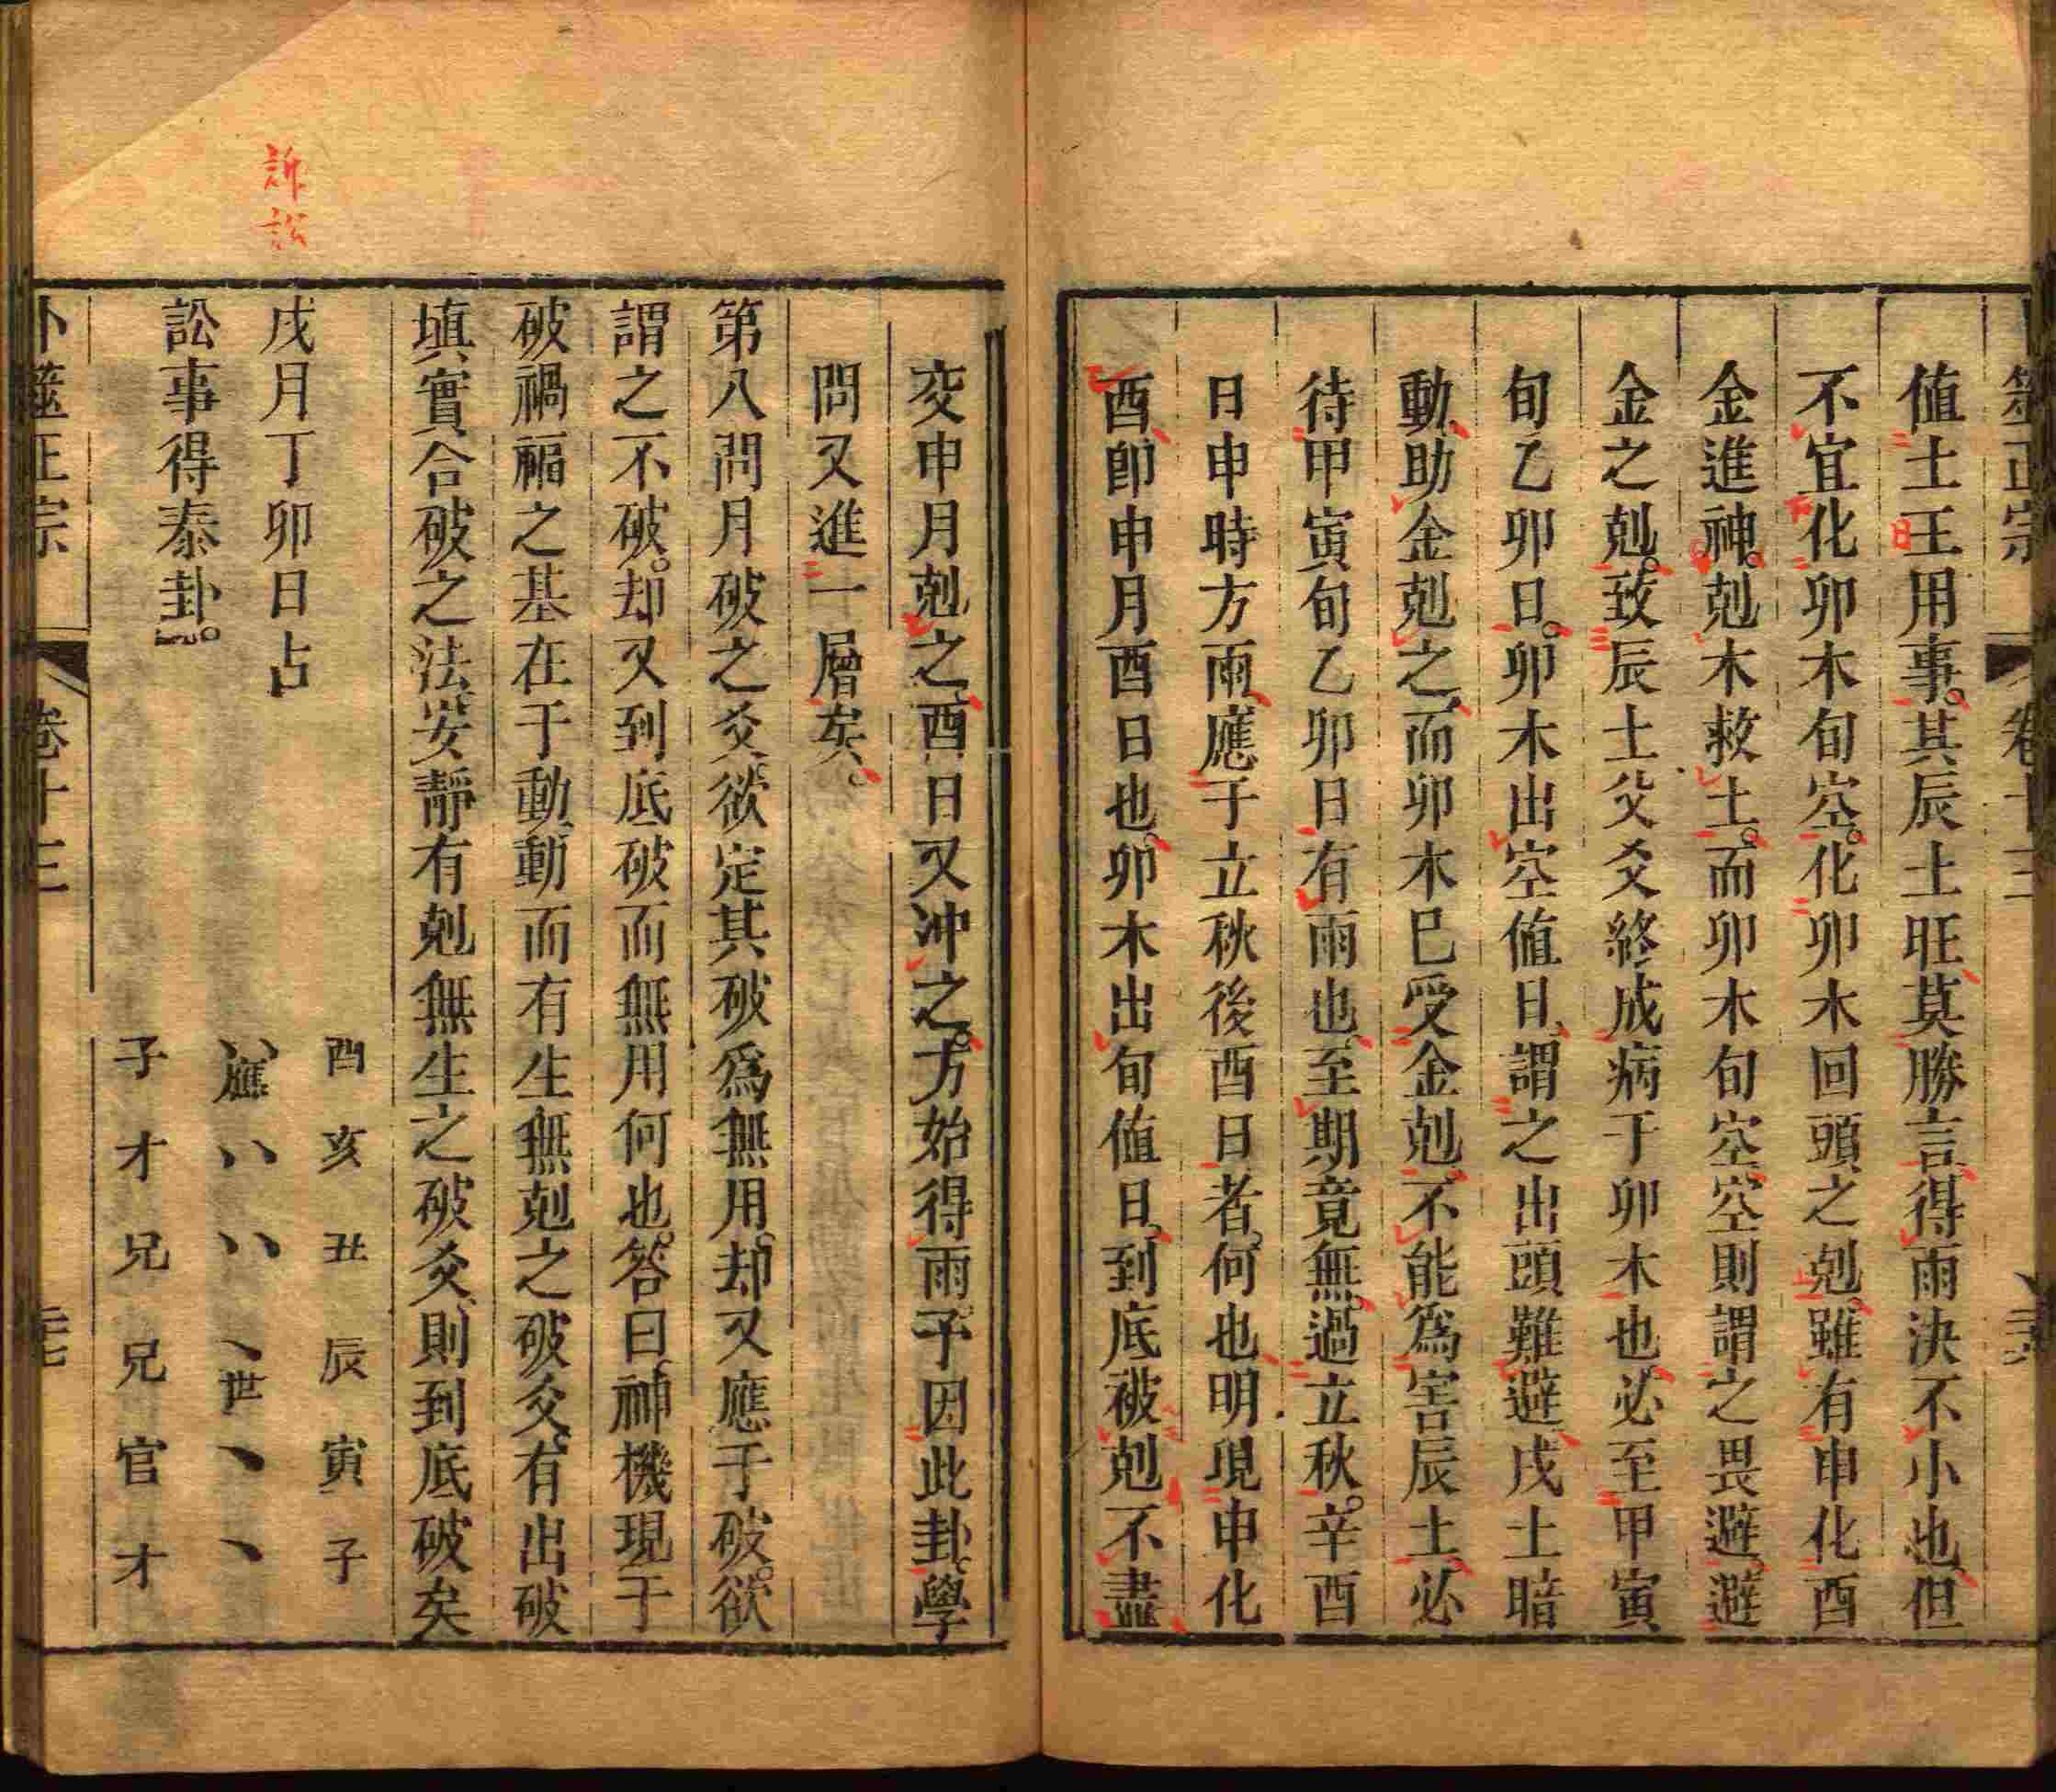 筮正宗 卷十三
值土王用事。其辰土旺、莫勝言、得雨決不小也、但
不宜化卯木旬空。化卯木回頭之剋、雖有申化酉
金進神。剋木救土。而卯木旬空、空則謂之畏避。避
金之剋。致辰土父爻終成病于卯木也、必至甲寅
旬乙卯日。卯木出空值日、謂之出頭難避、戌土暗
動、助金剋之、而卯木已受金剋、不能為害辰土、必
待甲寅旬乙卯日有雨也、至期竟無、過立秋。辛酉
日申時方雨、應于立秋後酉日者、何也、明現申化
酉、即申月酉日也、卯木出旬值日、到底被剋不盡
交申月剋之、酉日又沖之。方始得雨、予因此卦、學
問又進一層矣。
第八問月破之爻、欲定其破為無用、却又應于破。欲
謂之不破。却又到底破而無用何也。答曰、神機現于
破禍福之基在于動、動而有生無剋之破爻、有出破
填實合破之法、安靜有剋無生之破爻、則到底破矣
訴訟
戌月丁卯日占
訟事得泰卦。
酉 亥 丑 辰 寅 子
應 世
子 才 兄 兄 官 才
卜筮正宗 卷十三